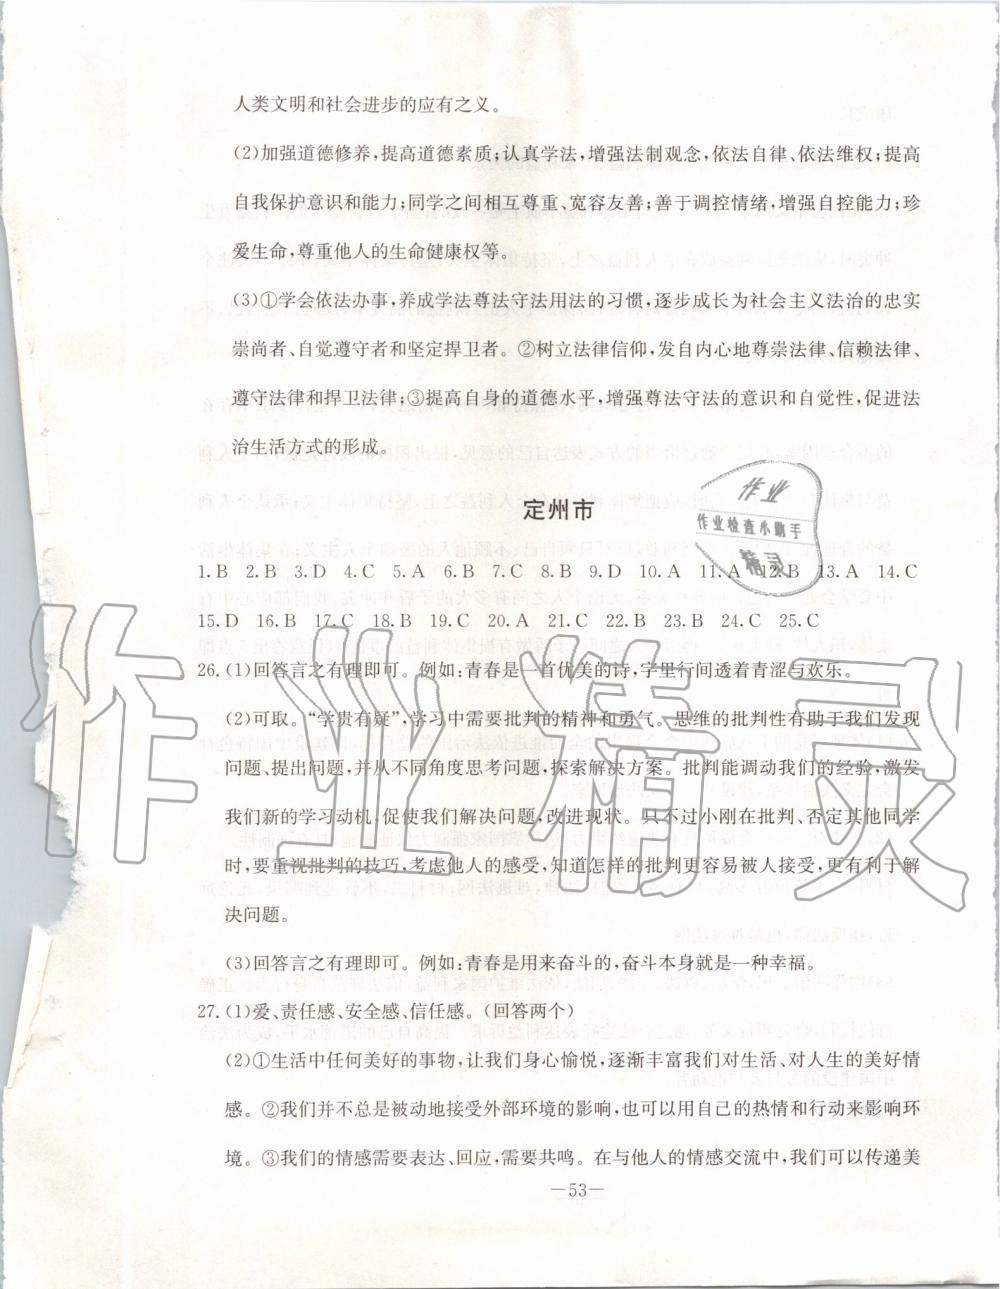 人类文明和社会进步的应有之义。
(2)加强道德修养,提高道德素质;认真学法,增强法制观念,依法自律、依法维权;提高
自我保护意识和能力;同学之间相互尊重、宽容友善;善于调控情绪,增强自控能力;珍
爱生命,尊重他人的生命健康权等。
(3)①学会依法办事,养成学法尊法守法用法的习惯,逐步成长为社会主义法治的忠实
崇尚者、自觉遵守者和坚定捍卫者。②树立法律信仰,发自内心地尊崇法律、信赖法律、
遵守法律和捍卫法律;③提高自身的道德水平,增强尊法守法的意识和自觉性,促进法
治生活方式的形成。
作业
作业检查小助手
精灵
定州市
1.B 2.B 3.D 4.C 5.A 6.B 7.C 8.B 9.D 10.A 11.A 12.B 13.A 14.C
15.D 16.B 17.C 18.B 19.C 20.A 21.C 22.B 23.B 24.C 25.C
26.(1)回答言之有理即可。例如:青春是一首优美的诗,字里行间透着青涩与欢乐。
(2)可取。“学贵有疑”,学习中需要批判的精神和勇气。思维的批判性有助于我们发现
问题、提出问题,并从不同角度思考问题,探索解决方案。批判能调动我们的经验,激发
我们新的学习动机,促使我们解决问题,改进现状。只不过小刚在批判、否定其他同学
时,要重视批判的技巧,考虑他人的感受,知道怎样的批判更容易被人接受,更有利于解
决问题。
(3)回答言之有理即可。例如:青春是用来奋斗的,奋斗本身就是一种幸福。
27.(1)爱、责任感、安全感、信任感。(回答两个)
(2)①生活中任何美好的事物,让我们身心愉悦,逐渐丰富我们对生活、对人生的美好情
感。②我们并不总是被动地接受外部环境的影响,也可以用自己的热情和行动来影响环
境。③我们的情感需要表达、回应,需要共鸣。在与他人的情感交流中,我们可以传递美
—53—
作业精灵